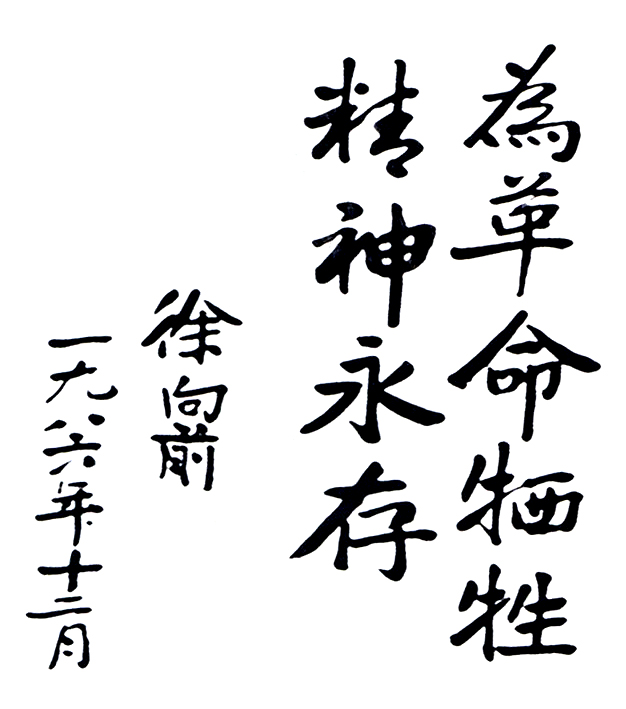 為革命牺牲
精神永存
徐向前
一九八六年十二月